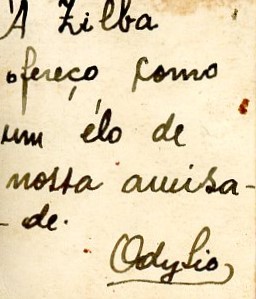 A Zilba
ofereço como
um élo de
nossa amisa-
-de.
Odysio